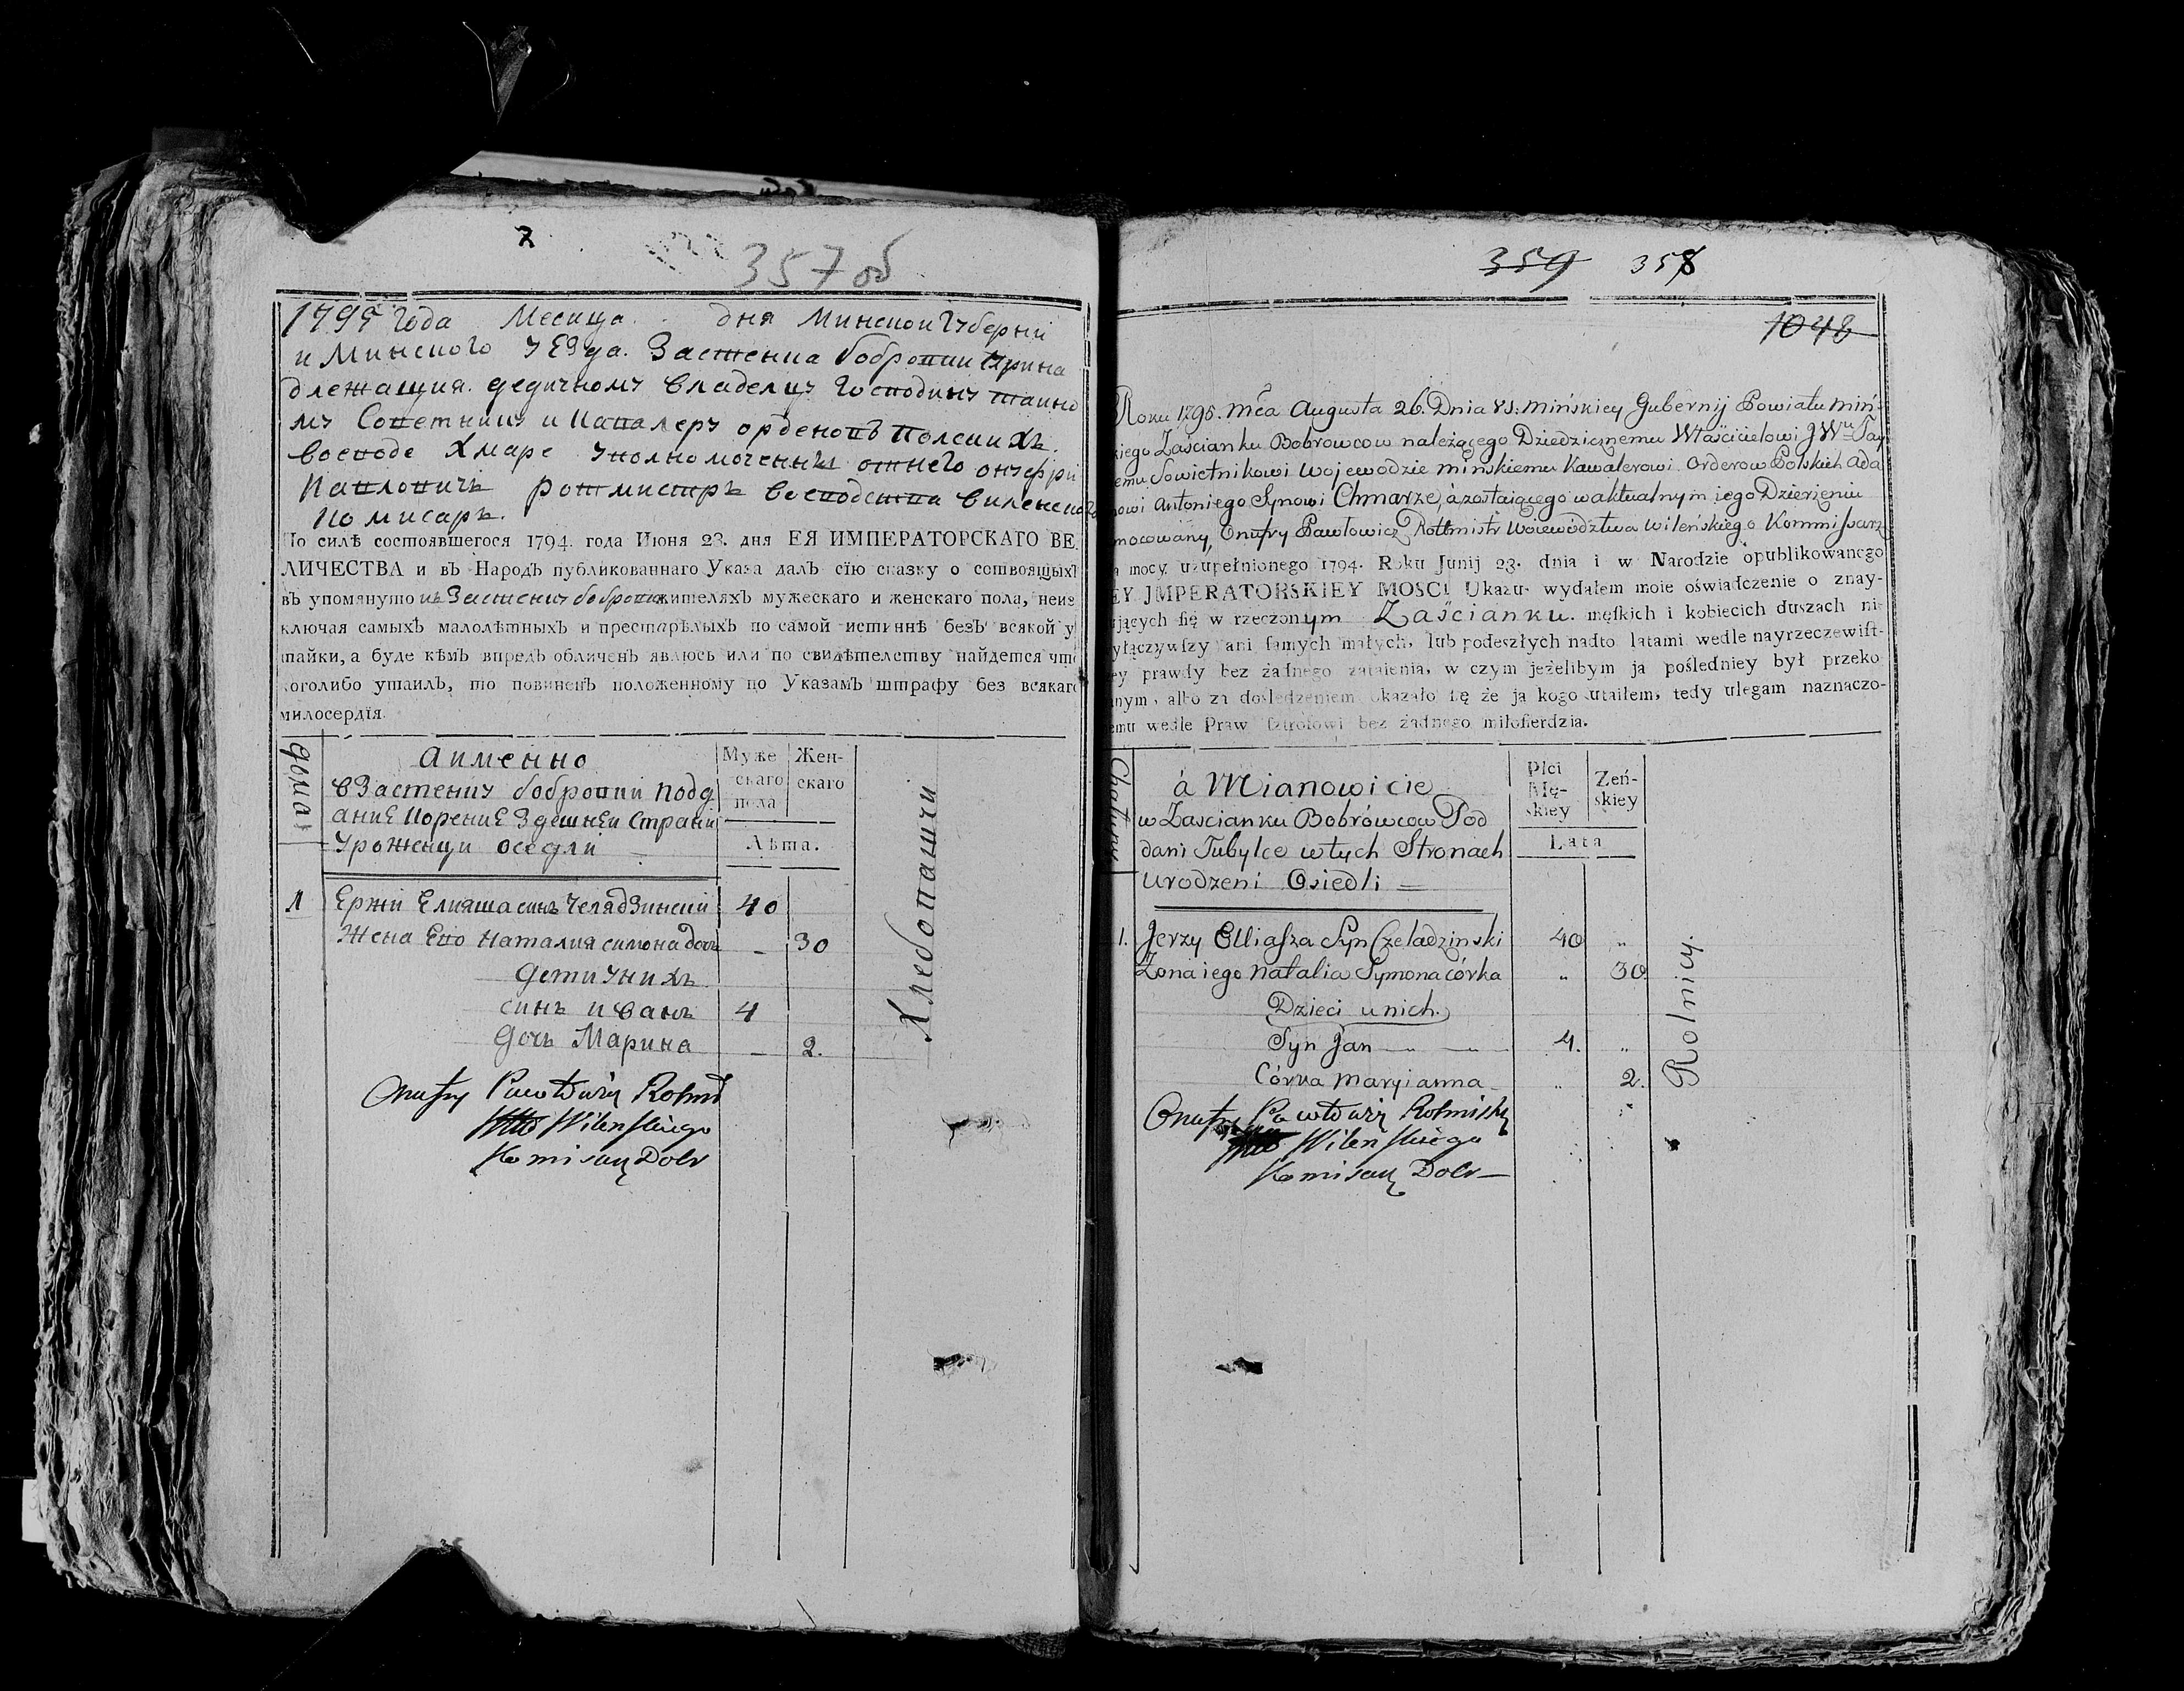 357 об
1795 года Месяца дня Минской Губерніи
и Минского уезда. Застенка бобровки прина
длежащия. дедичному владелцу Господину тайно
му Советнику и Кавалеру орденовъ полскихъ
воеводе Хмаре уполномоченный отнего онуфрій
Павловичъ ротмистръ воеводства виленского
Комисаръ.
По силѣ состоявшегося 1794. года Июня 23. дня ЕЯ ИМПЕРАТОРСКАГО ВЕ
ЛИЧЕСТВА и въ Народъ публикованнаго Указа далъ сїю сказку о соствоящыхъ
въ упомянуто Застенку бобровки жителяхъ мужескаго и женскаго пола, неис
ключая самыхъ малолѣтныхъ и престарѣлыхъ по самой истиннѣ безъ всякой у
тайки, а буде кѣмъ впредь обличенъ явлюсь или по свидѣтелству найдется что
коголибо утаилъ, то повиненъ положенному по Указамъ штрафу без всякаго
милосердїя.
дома
Аименно
Муже
скаго
пола
Жен-
скаго
взастенку бобровки подд
ание корение здешней страни
уроженци осели
Лѣта.
Хлебопашци
1 Ержій Елияша синъ Челядзинский 40
Жена Ево Наталия симона дочь - 30
Дети уних
синъ иванъ 4
Дочь Марина - 2.
Onufry Pawłowicz Rotmi
Wilenskiego
Komisarz Dobr
359 358
1048
Roku 1795. Mca Augusta 26. Dnia vs: Mińskiey Gubernij Powiatu Miń
kiego Zaścianku Bobrowcow należącego Dziedzicznemu Właścicielowi JWu Tay
emu Sowietnikowi Wojewodzie Mińskiemu Kawalerowi Orderow Polskich Ada
mowi Antoniego Synowi Chmarze, à zostaiącego w aktualnym iego Dzierżeniu
mocowany, Onufry Pawłowicz Rottmistr Woiewodztwa Wileńskiego Kommissarz
a mocy uzupełnionego 1794. Roku Junij 23. dnia i w Narodzie opublikowanego
EY JMPERATORSKIEY MOSCI Ukazu wydałem moie oświadczenie o znay-
ujących się w rzeczonym Zaścianku. męskich i kobiecich duszach nie
yłączywszy ani samych małych, lub podeszłych nadto latami wedle nayrzeczewist-
ey prawdy bez żadnego zataienia, w czym jeżelibym ja poślednIey był przeko
nanym, albo za dośledzeniem okazało się że ja kogo utaiłem, tedy ulegam naznaczo-
emu wedle Praw sztrofowi bez żadnego miłosierdzia.
Chałupy
à Mianowicie
Płci
Mę-
skiey
Żeń-
skiey
w Zascianku Bobrówcow Pod
dani Tubylce w tych Stronach
Urodzeni Osiedli
Lata
Rolnicy.
1. Jerzy Elliasza Syn Czeladzinski 40 "
Żona iego Natalia Symona córka " 30
Dzieci u nich.
Syn Jan 4. "
Córka Maryianna " 2.
Onufry Pawłowicz Rotmistrz
Wilenskiego
Komisarz Dobr